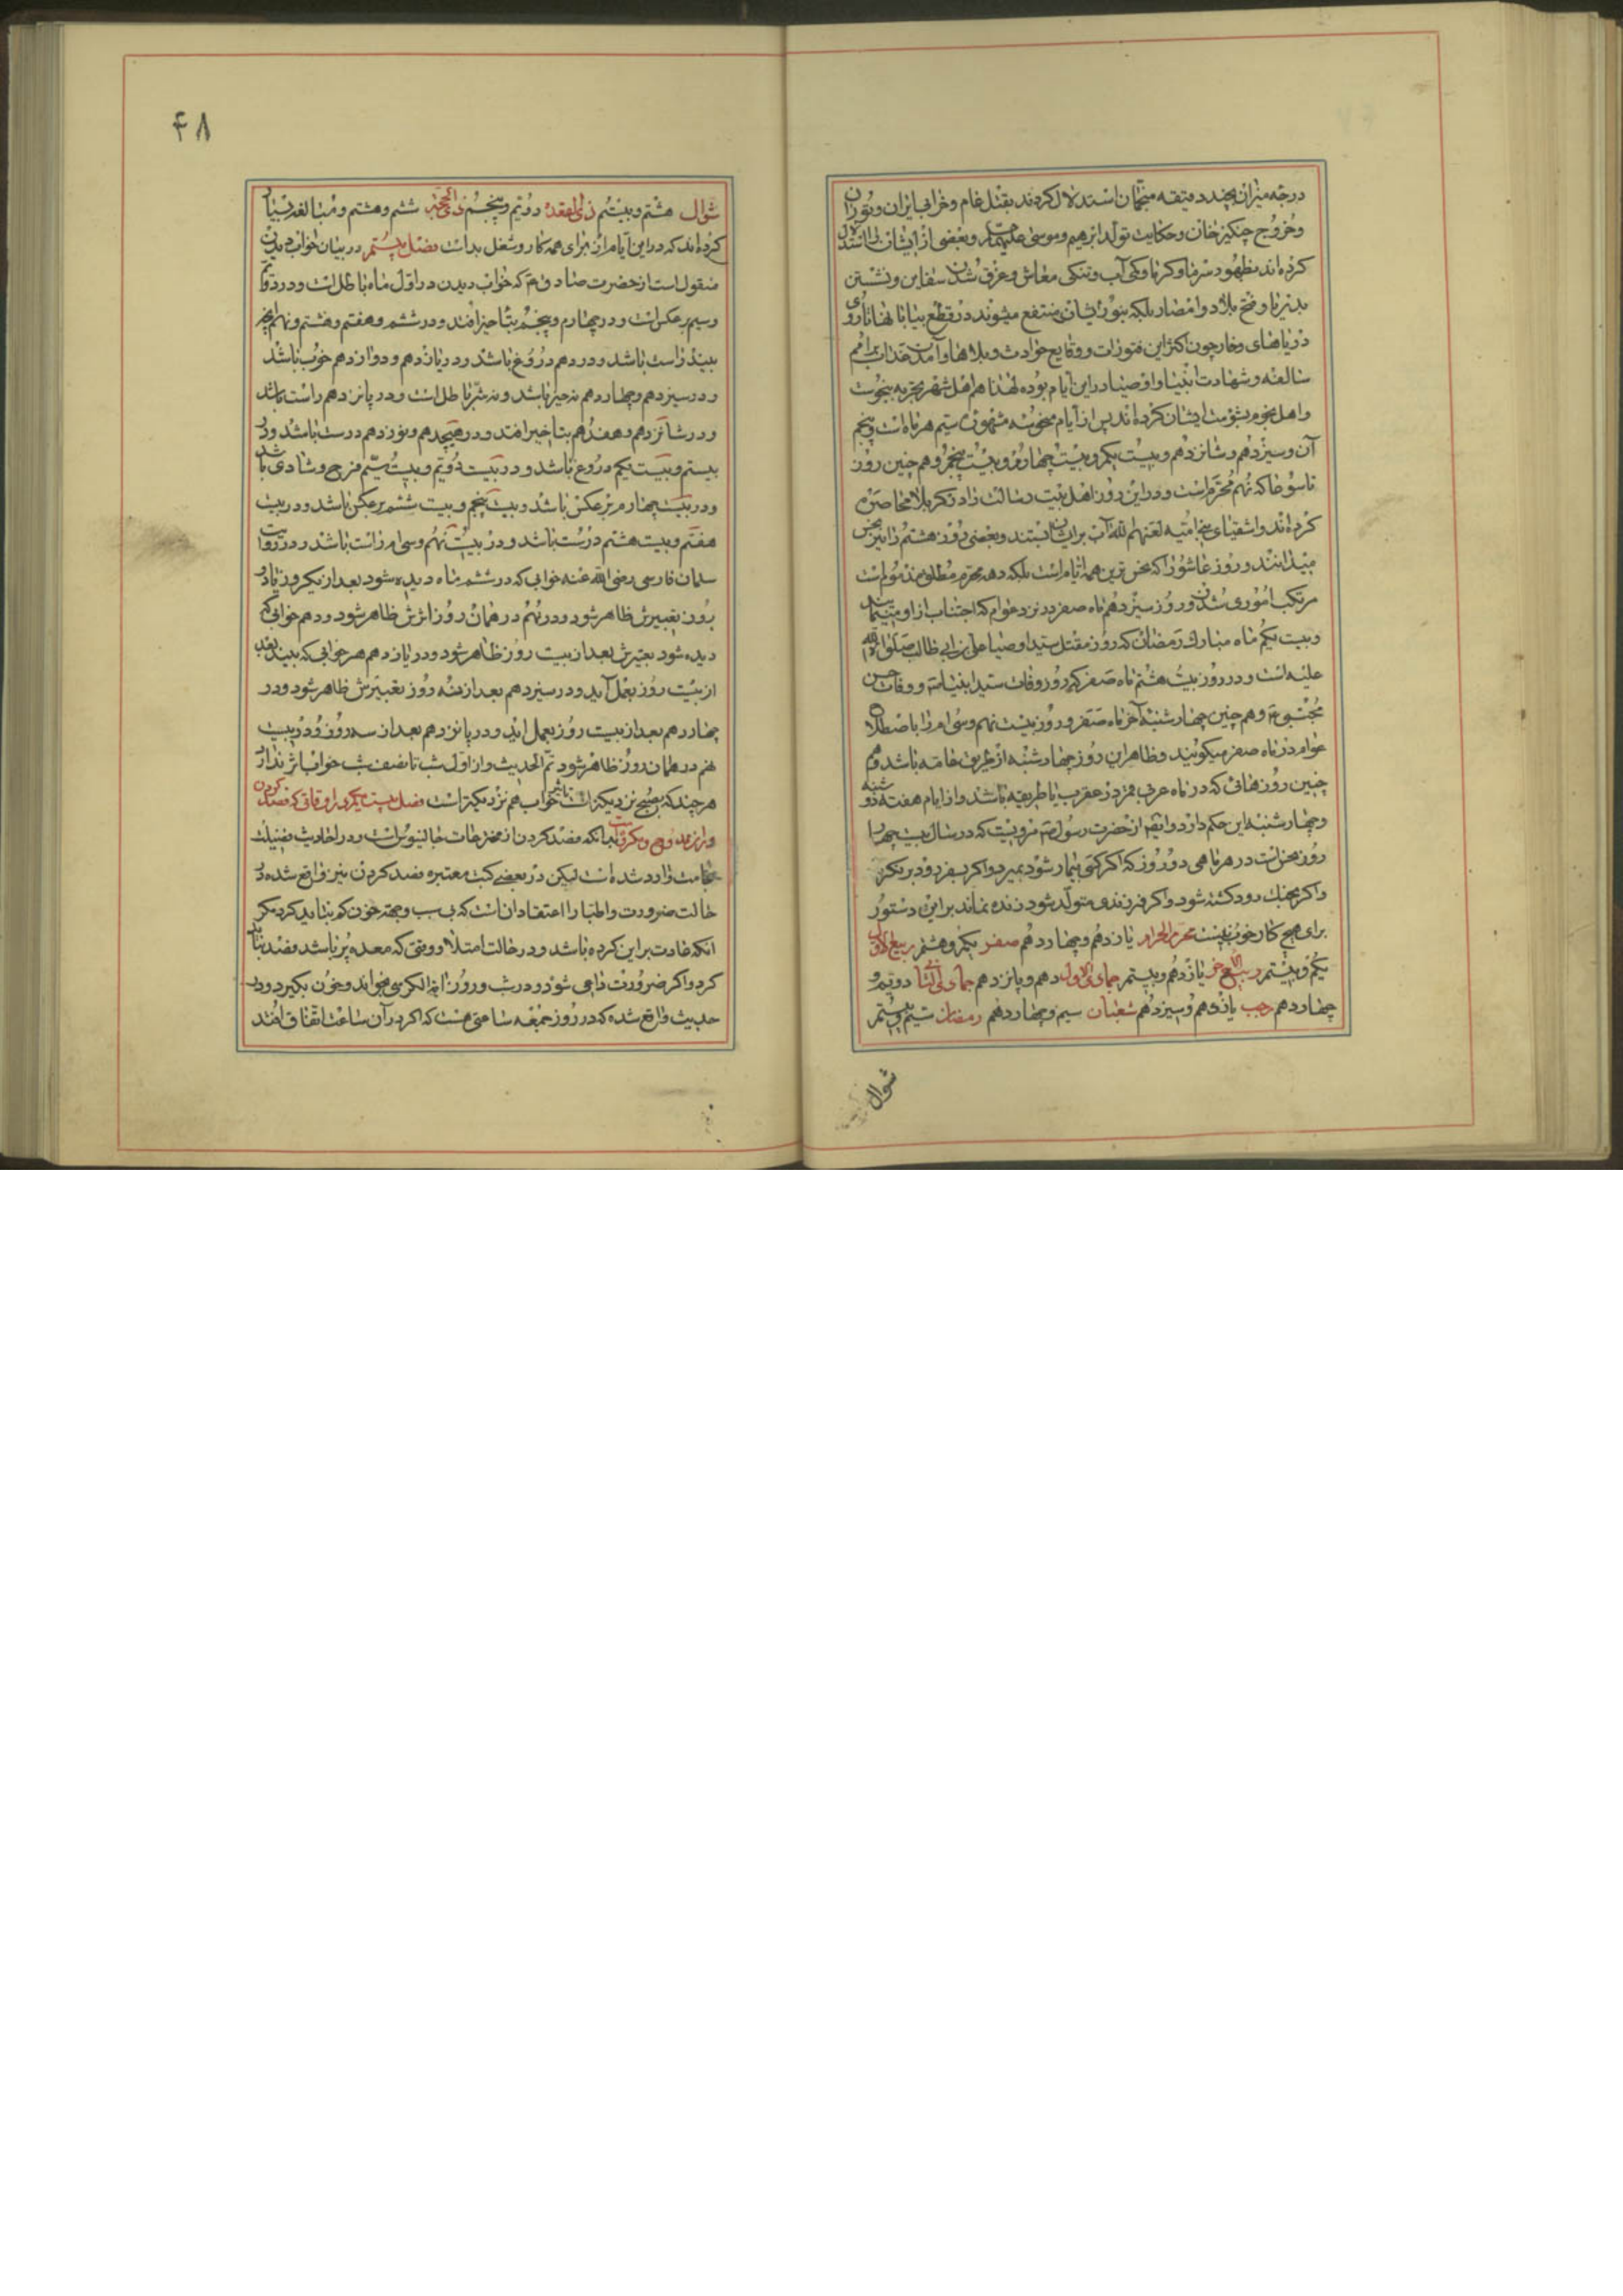 درجه میزان بچند دقیقه منجمان استدلال کردند بقتل عام و خرابی ایران و توران
و خروج چنگیز خان و حکایت تولد ابرهیم و موسی علیهما و بعضی از ایشان استدلال
کرده اند بظهور سرما و گرما و کمی آب و تنگی معاش و غرق شدن سفاین و نشستن
بدنیا و فتح بلاد و امصار بلکه بنور ایشان منتفع میشوند در قطع بیابانها تا روی
دریاهای و خار چون اکثر این فتورات و وقایع حوادث و بلاها و آمدن عذاب بر امم
سالفه و شهادت انبیا و اوصیا در این ایام بوده لهذا هم اهل شهر بتجربه بنحوست
و اهل نجوم بشومت ایشان کرده اند پس از ایام منحوسه مشهور سیم هر ماه است و پنجم
آن و سیزدهم و شانزدهم و بیست یکم و بیست چهارم و بیست پنجم و هم چنین روز
تاسوعا که نهم محرم است و در این روز اهل بیت رسالت را در کربلا محاصره
کرده اند و اشقیای بنی امیه لعنهم الله آب بر ایشان بستند و بعضی روز هشتم را نیز نحس
میدانند و روز عاشورا که نحس ترین همه ایام است بلکه دهه محرم مطلق مذموم است
مرتکب اموری شدن و روز سیزدهم ماه صفر در نزد عوام که اجتناب از او مینمایند
و بیست یکم ماه مبارک رمضان که روز مقتل سید اوصیا علی بن ابی طالب صلوات الله
علیه است و در روز بیست هشتم ماه صفر که روز وفات سید انبیا ست و وفات حسن
مجتبی و هم چنین چهارشنبه آخر ماه صفر و روز بیست نهم و سی ام را باصطلاح
عوام در ماه صفر میگویند و ظاهرا این روز چهارشنبه از طریق عامه باشد و هم
چنین روزهائی که در ماه عربی قمر در عقرب یا طریقه باشد و از ایام هفته دو شنبه
و چهارشنبه این حکم دارد و ایضا از حضرت رسول مرویست که در سال بیست چهار
روز نحس است در هر ماهی دو روز که اگر کسی بیمار شود بمیرد و اگر بسفر رود بر نگردد
و اگر بجنگ رود کشته شود و اگر فرزندی متولد شود زنده نماند بر این دستور
برای هیچ کار خوب نیست محرم الحرام یازدهم و چهاردهم صفر یکم و هشتم ربیع الاول
یکم و بیستم ربیع الاخر یازدهم و بیستم جمادی الاول دهم و پانزدهم جمادی الثانی دویم و
چهاردهم رجب یازدهم و سیزدهم شعبان سیم و چهاردهم رمضان سیم و بیستم
شوال
۴۸
شوال هشتم و بیستم ذی القعده دویم و پنجم ذی الحجه ششم و هشتم و مبالغه بسیار
کرده اند که در این ایام از برای همه کار و شغل بد است فصل بیستم در بیان خواب دیدن
منقول است از حضرت صادق که خواب دیدن در اول ماه باطل است و در دویم
و سیم بر عکس است و در چهارم و پنجم بتاخیر افتد و در ششم و هفتم و هشتم و نهم هر چه
بیند راست باشد و در دهم دروغ باشد و در یازدهم و دوازدهم خوب باشد
و در سیزدهم و چهاردهم نه خیر باشد و نه شر باطل است و در پانزدهم راست باشد
و در شانزدهم و هفدهم بتاخیر افتد و در هیجدهم و نوزدهم درست باشد و در
بیستم و بیست یکم دروغ باشد و در بیست دویم و بیست سیم فرح و شادی باشد
و در بیست چهارم بر عکس باشد و بیست پنجم و بیست ششم بر عکس باشد و در بیست
هفتم و بیست هشتم درست باشد و در بیست نهم و سی ام راست باشد و در روایت
سلمان فارسی رضی الله عنه خوابی که در ششم ماه دیده شود بعد از یکروز یا دو
روز تعبیرش ظاهر شود و در نهم در همان روز اثرش ظاهر شود و دهم خوابی که
دیده شود تعبیرش بعد از بیست روز ظاهر شود و در یازدهم هر خوابی که بیند بعد
از بیست روز بعمل آید و در سیزدهم بعد از نه روز تعبیرش ظاهر شود و در
چهاردهم بعد از بیست روز بعمل اید و در پانزدهم بعد از سه روز و در بیست
نهم در همان روز ظاهر شود تم الحدیث و از اول شب تا نصف شب خواب اثر ندارد
هر چند که بصبح نزدیکتر است تاثیر خواب هم نزدیکتر است فصل بیست یکم در اوقاتی که فصد کردن
در آن ممدوح و مکروه است بدانکه فصد کردن از مخترعات جالینوس است و در احادیث فضیلت
حجامت وارد شده است لیکن در بعضی کتب معتبره فصد کردن نیز واقع شده در
حالت ضرورت و اطبا را اعتقاد آن است که بی سبب و جهة خون کم نباید کرد مگر
انکه عادت بر این کرده باشد و در حالت امتلا و وقتی که معده پر باشد فصد نباید
کرد و اگر ضرورت داعی شود و در شب و روز آیة الکرسی بخواند و خون بگیرد و در
حدیث واقع شده که در روز جمعه ساعتی هست که اگر در آن ساعت اتفاق افتد